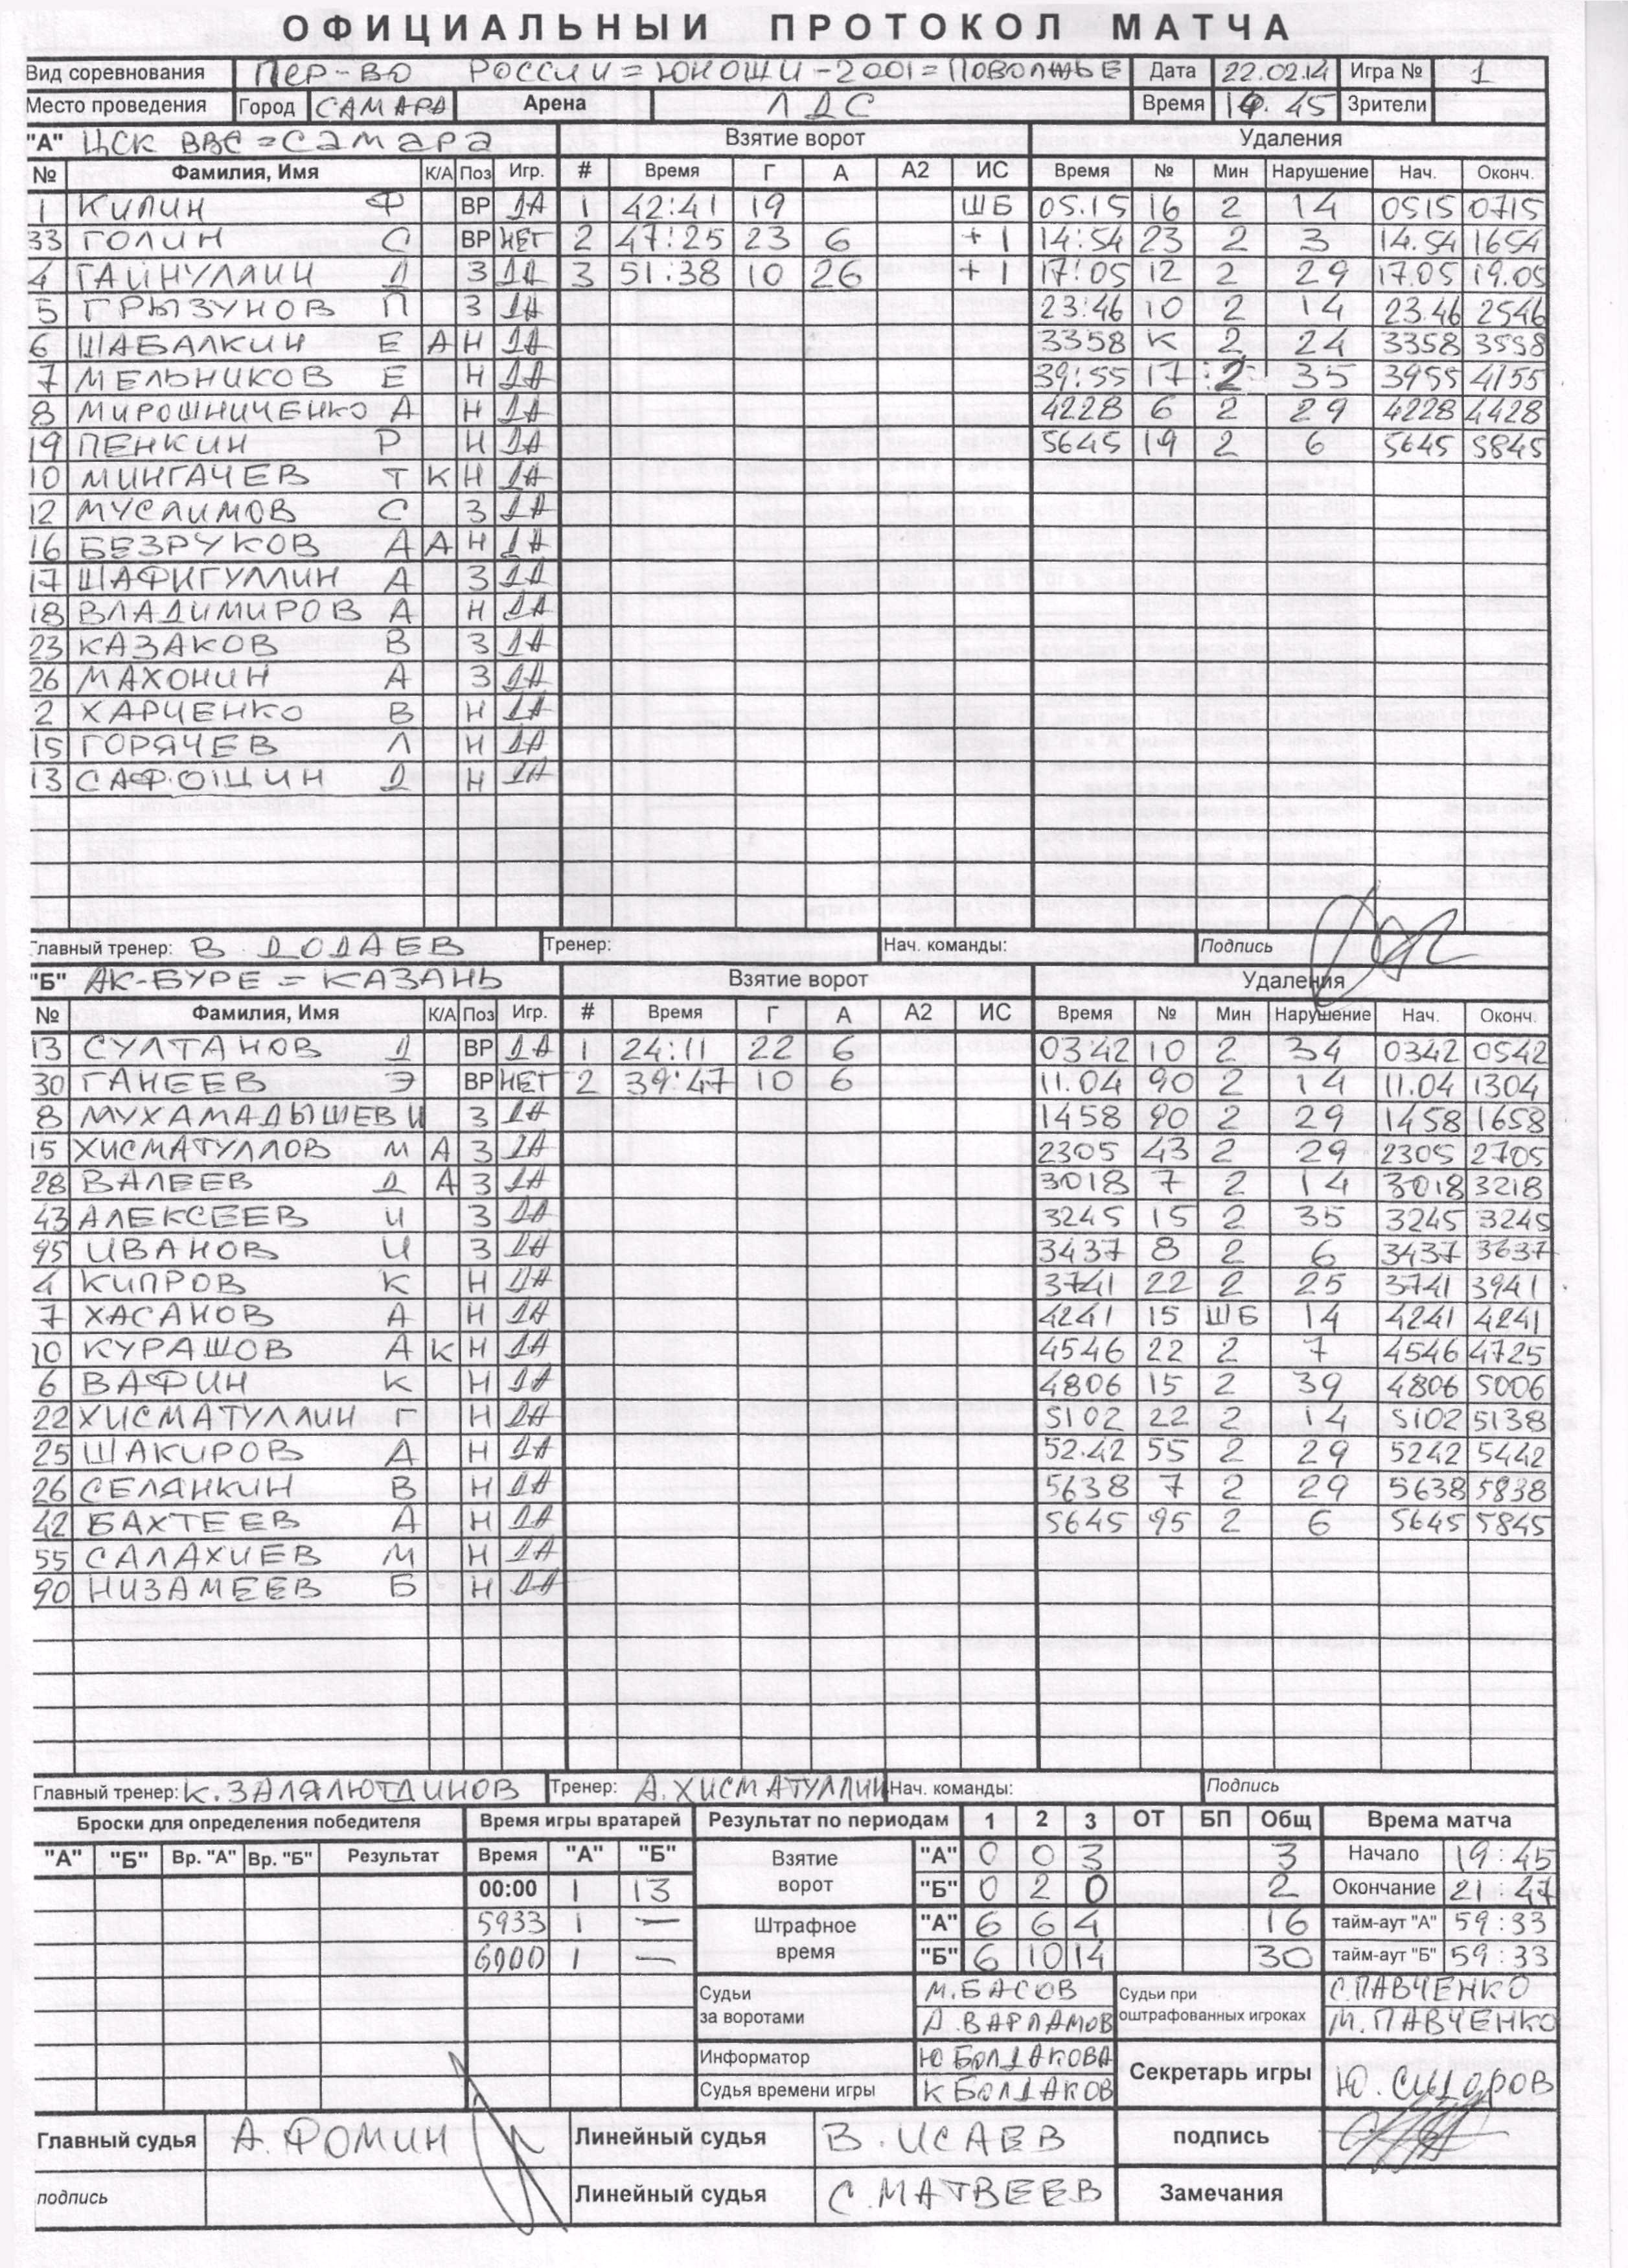 ОФИЦИАЛЬНЫЙ ПРОТОКОЛ МАТЧА
Вид соревнования ПЕР-ВО РОССИИ=ЮНОШИ-2001=ПОВОЛЖЬЕ Дата 22.02.14 Игра № 1
Место проведения Город САМАРА Арена ЛДС Время 19.45 Зрители
"А" ЦСК ВВС=САМАРА Взятие ворот Удаления
№ Фамилия, Имя К/А Поз Игр. # Время Г А А2 ИС Время № Мин Нарушение Нач. Оконч.
1 КИЛИН Ф ВР ДА 1 42:41 19 ШБ 05.15 16 2 14 0515 0715
33 ГОЛИН С ВР НЕТ 2 47:25 23 6 +1 14:54 23 2 3 14.54 1654
4 ГАЙНУЛЛИН Д З ДА 3 51:38 10 26 +1 17:05 12 2 29 17.05 19.05
5 ГРЫЗУНОВ П З ДА 23:46 10 2 14 23.46 2546
6 ШАБАЛКИН Е А Н ДА 3358 К 2 24 3358 3558
7 МЕЛЬНИКОВ Е Н ДА 39:55 17 2 35 3955 4155
8 МИРОШНИЧЕНКО А Н ДА 4228 6 2 29 4228 4428
19 ПЕНКИН Р Н ДА 5645 19 2 6 5645 5845
10 МИНГАЧЕВ Т К Н ДА
12 МУСЛИМОВ С З ДА
16 БЕЗРУКОВ А А Н ДА
17 ШАФИГУЛЛИН А З ДА
18 ВЛАДИМИРОВ А Н ДА
23 КАЗАКОВ В З ДА
26 МАХОНИН А З ДА
2 ХАРЧЕНКО В Н ДА
15 ГОРЯЧЕВ Л Н ДА
13 САФОШИН Д Н ДА
Главный тренер: В ДОДАЕВ Тренер: Нач. команды: Подпись
"Б" АК-БУРЕ=КАЗАНЬ Взятие ворот Удаления
№ Фамилия, Имя К/А Поз Игр. # Время Г А А2 ИС Время № Мин Нарушение Нач. Оконч.
13 СУЛТАНОВ Д ВР ДА 1 24:11 22 6 0342 10 2 34 0342 0542
30 ГАНЕЕВ Э ВР НЕТ 2 39:47 10 6 11.04 90 2 14 11.04 1304
8 МУХАМАДЫШЕВ И З ДА 1458 90 2 29 1458 1658
15 ХИСМАТУЛЛОВ М А З ДА 2305 43 2 29 2305 2705
28 ВАЛЕЕВ Д А З ДА 3018 7 2 14 3018 3218
43 АЛЕКСЕЕВ И З ДА 3245 15 2 35 3245 3245
95 ИВАНОВ И З ДА 3437 8 2 6 3437 3637
4 КИПРОВ К Н ДА 3741 22 2 25 3741 3941
7 ХАСАНОВ А Н ДА 4241 15 ШБ 14 4241 4241
10 КУРАШОВ А К Н ДА 4546 22 2 7 4546 4725
6 ВАФИН К Н ДА 4806 15 2 39 4806 5006
22 ХИСМАТУЛЛИН Г Н ДА 5102 22 2 14 5102 5138
25 ШАКИРОВ А Н ДА 52.42 55 2 29 5242 5442
26 СЕЛЯНКИН В Н ДА 5638 7 2 29 5638 5838
42 БАХТЕЕВ А Н ДА 5645 95 2 6 5645 5845
55 САЛАХИЕВ М Н ДА
90 НИЗАМЕЕВ Б Н ДА
Главный тренер: К. ЗАЛЯЛЮТДИНОВ Тренер: А. ХИСМАТУЛЛИН Нач. команды: Подпись
Броски для определения победителя Время игры вратарей Результат по периодам 1 2 3 ОТ БП Общ Врема матча
"А" "Б" Вр. "А" Вр. "Б" Результат Время "А" "Б" Взятие ворот "А" 0 0 3 3 Начало 19:45
00:00 1 13 "Б" 0 2 0 2 Окончание 21 47
5933 1 — Штрафное время "А" 6 6 4 16 тайм-аут "А" 59:33
6000 1 — "Б" 6 10 14 30 тайм-аут "Б" 59:33
Судьи за воротами М. БАСОВ Судьи при оштрафованных игроках С. ПАВЧЕНКО
Д. ВАРЛАМОВ М. ПАВЧЕНКО
Информатор Ю БОЛДАКОВА Секретарь игры Ю. СИДОРОВ
Судья времени игры К БОЛДАКОВ
Главный судья А. ФОМИН Линейный судья В. ИСАЕВ подпись
подпись Линейный судья С. МАТВЕЕВ Замечания